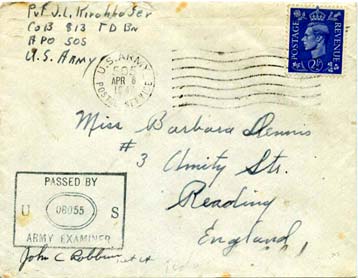 Pvt J.L. Kirchhofer
Co B 813 TD Bn
APO 505
U.S. Army
U.S. ARMY
APR 6
POSTAL SERVICE
POSTAGE REVENUE
2½
Miss Barbara Dennis
#3 Amity Str.
Reading
England
PASSED BY
U 06055 S
ARMY EXAMINER
John C Robbins